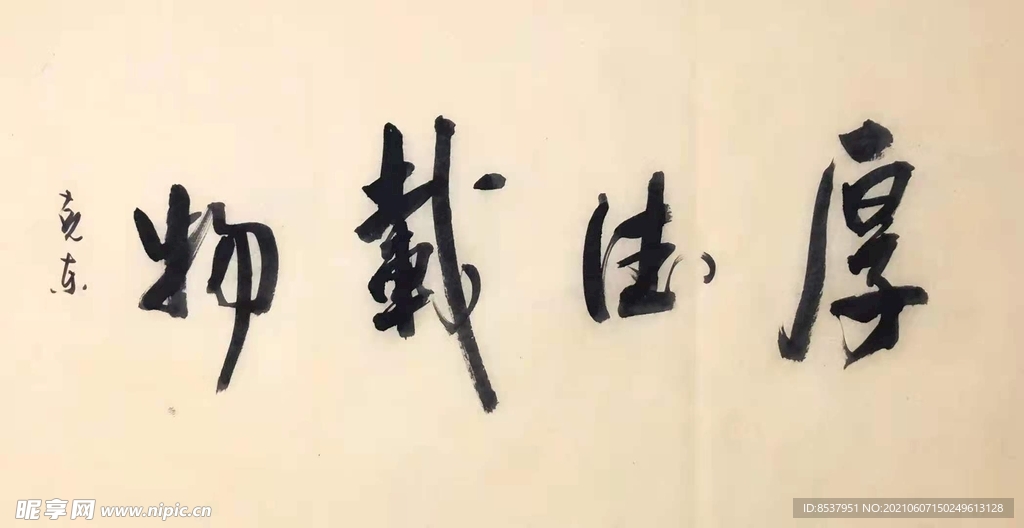 厚德载物
克东
昵享网 www.nipic.cn
ID:8537951 NO:20210607150249613128